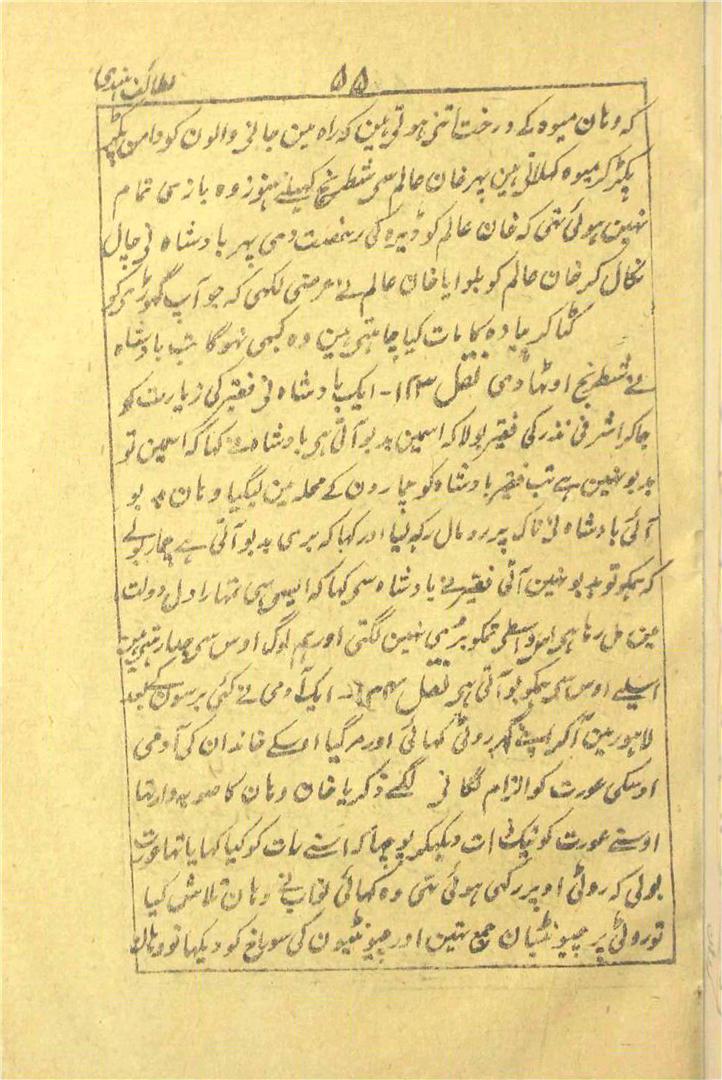 ۵۵
لطائف ہندی
کہ وہان میوہ کے درخت اتنی ہوتی ہین کہ راہ مین جانی والون کو دامن پکڑ
پکڑ کر میوہ کہلاتی ہین پہر خان عالم سی شطرنج کہیلے ہنوز وہ بازی تمام
نہین ہوئی تہی کہ خان عالم کو ڈیرہ کی رخصت دی پہر بادشاہ نی چال
نکال کر خان عالم کو بلوایا خان عالم نے عرضی لکہی کہ جو آپ گہوڑی کو
کٹا کر پیادہ کا مات کیا چاہتی ہین وہ کبہی نہوگا تب بادشاہ
نے شطرنج اوٹہا دی نقل ۱۲۳ - ایک بادشاہ نی فقیر کی زیارت کو
جا کر اشرفی نذر کی فقیر بولا کہ اسمین بدبو آتی ہی بادشاہ نے کہا کہ اسمین تو
بدبو نہین ہے تب فقیر بادشاہ کو چمارون کے محلہ مین لیگیا وہان بدبو
آئی بادشاہ نی ناک پر رومال رکہہ لیا اور کہا کہ بری بدبو آتی ہے چمار بولے
کہ ہمکو تو بدبو نہین آتی فقیر نے بادشاہ سی کہا کہ ایسی ہی تمہارا دل دولت
مین مل رہا ہی اس واسطی تمکو بری نہین لگتی اور ہم لوگ اوس سی جدا رہتی ہین
اسلیے اوس سی ہمکو بو آتی ہی نقل ۱۲۴ - ایک آدمی نے کئی برسون کے بعد
لاہور مین آ کر اپنے گہر روٹی کہائی اور مر گیا اوسکے خاندان کی آدمی
اوسکی عورت کو الزام لگانی لگے ذکریا خان وہان کا صوبہ دار تہا
اوسنے عورت کو نیک ذات دیکہکر پوچہا کہ اسنے رات کو کیا کہایا تہا عورت
بولی کہ روٹی اوپر رکہی ہوئی تہی وہ کہائی نواب نے وہان تلاش کیا
تو روٹی پر چیونٹیان جمع تہین اور چیونٹیون کی سوراخ کو دیکہا تو وہان